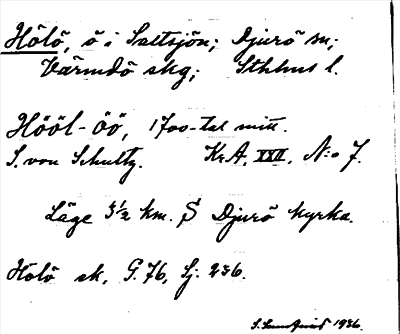 Hölö, ö i Saltsjön; Djurö sn;
Värmdö skg; Sthlms l.
Hööl-öö, 1700-tal mitt.
S. von Schultz. Kr.A. XXII, N:o 7.
Läge 3½ km. S Djurö kyrka.
Hölö sk, G. 76, Sj. 236.
1936.